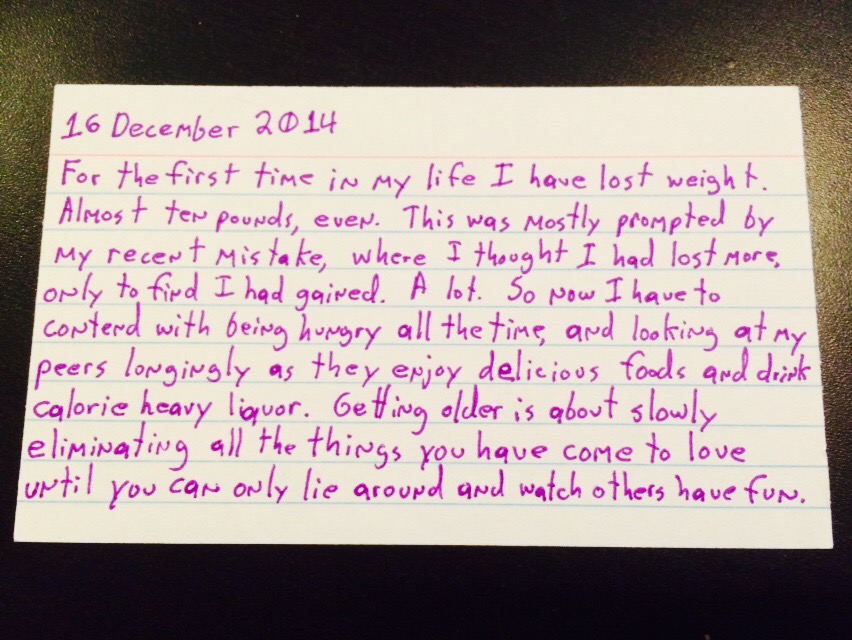 16 December 2014
For the first time in my life I have lost weight.
Almost ten pounds, even. This was mostly prompted by
my recent mistake, where I thought I had lost more,
only to find I had gained. A lot. So now I have to
contend with being hungry all the time, and looking at my
peers longingly as they enjoy delicious foods and drink
calorie heavy liquor. Getting older is about slowly
eliminating all the things you have come to love
until you can only lie around and watch others have fun.